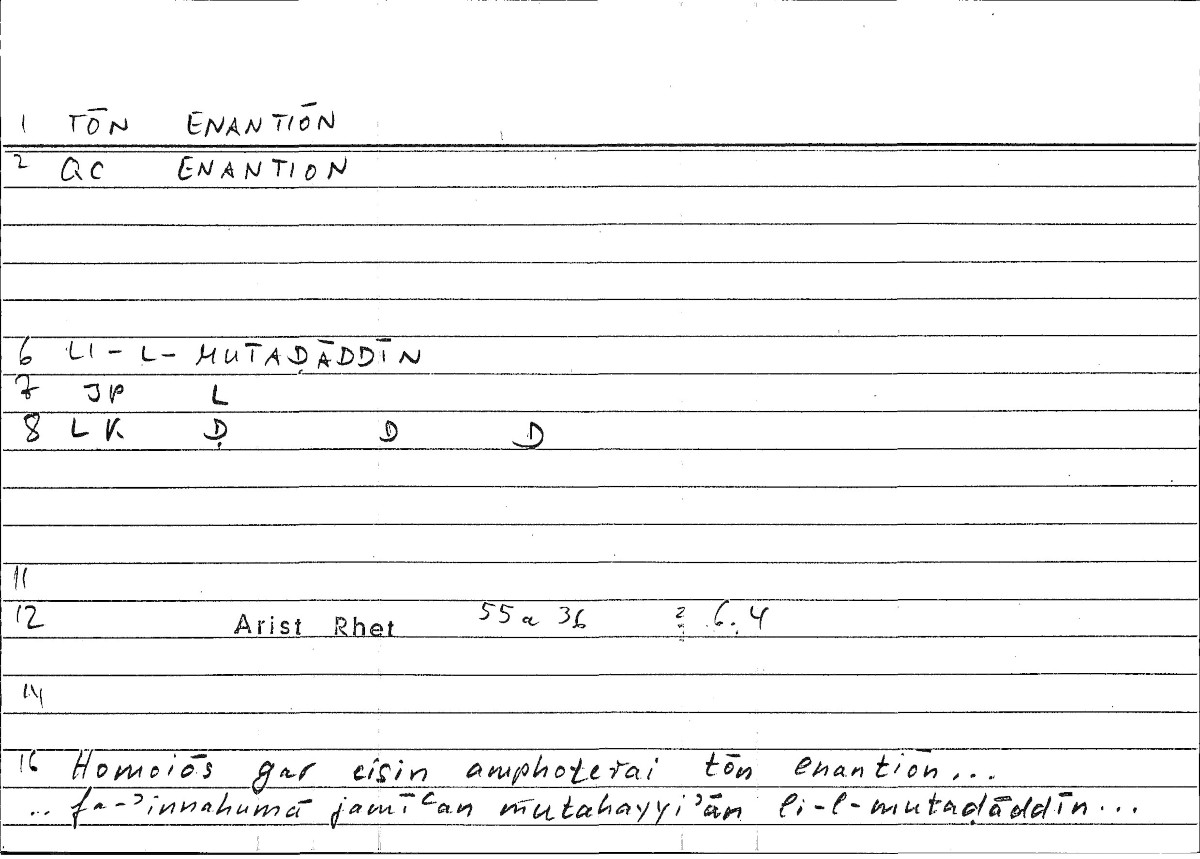 1 TŌN ENANTIŌN
2 QC ENANTION
6 LI-L-MUTAḌĀDDĪN
7 JP L
8 LK Ḍ D D
11
12 Arist Rhet 55a 36 6.4
14
16 Homoiōs gar eisin amphoterai tōn enantiōn...
.. fa-ʾinnahumā jamīʿan mutahayyiʾān li-l-mutaḍāddīn...